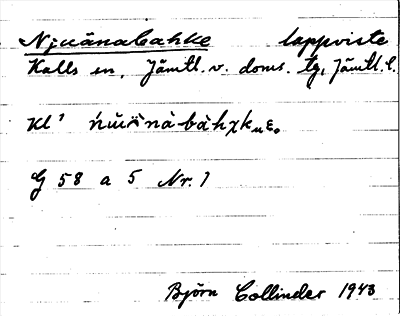 Njuänabahke lappviste
Kalls sn, Jämtl. v. doms. tg, Jämtl. l.
Kl¹
G 58 a 5 Nr. 1
Björn Collinder 1943